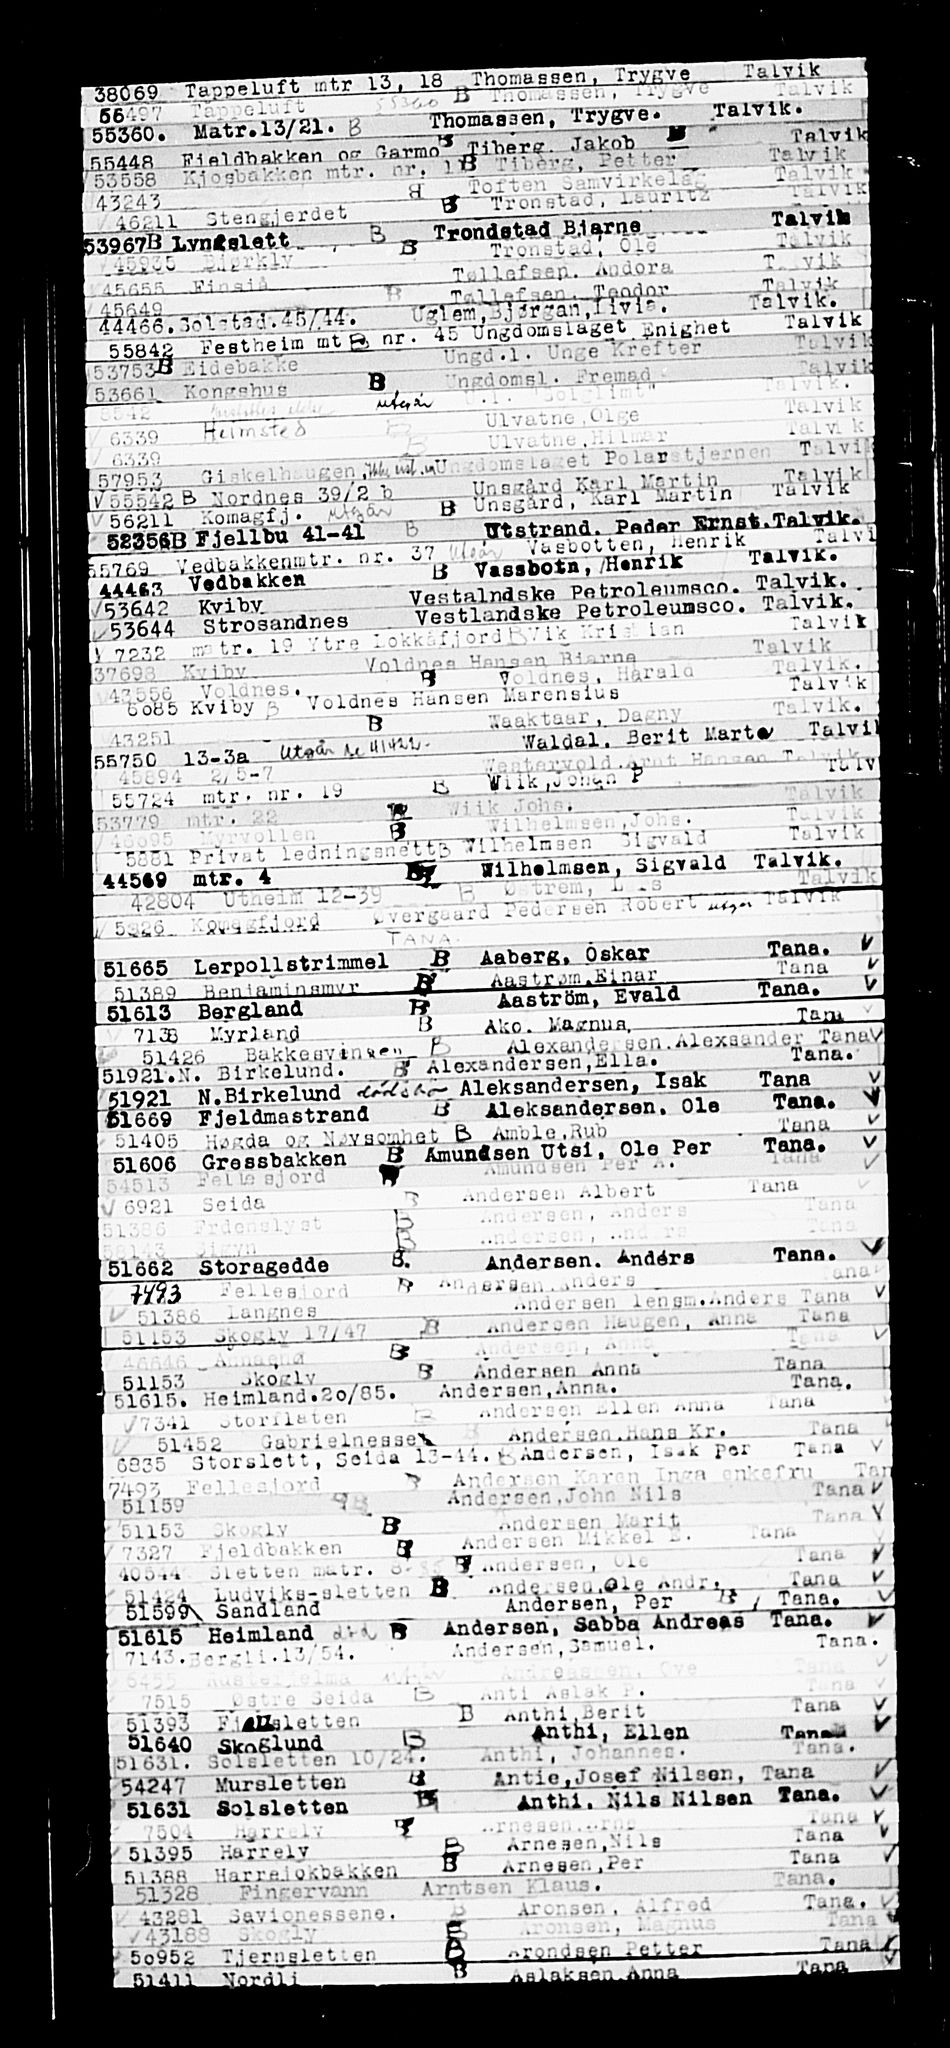 38069 Tappeluft mtr 13, 18 Thomassen, Trygve Talvik
56497 Tappeluft 55360 B Thomassen, Trygve Talvik
55360. Matr.13/21. B Thomassen, Trygve. Talvik.
55448 Fjeldbakken og Garmo B Tiberg. Jakob B Talvik
53558 Kjosbakken mtr. nr. 11B Tiberg, Petter Talvik
43243 B Toften Samvirkelag Talvik
46211 Stengjerdet B Tronstad, Lauritz Talvik
53967B Lyngslett B Trondstad Bjarne Talvik
45935 Bjørkly B Tronstad, Ole Talvik
45655 Tøllefsen. Andora Talvik
45649 B Tøllefsen. Teodor Talvik
44466.Solstad.45/44. Uglem,Bjørgan,Livia. Talvik.
55842 Festheim mt B nr. 45 Ungdomslaget Enighet Talvik
53753B Eidebakke Ungd.l. Unge Krefter Talvik
53661 Kongshus B Ungdomsl. Fremad Talvik
8542 utgår U.l. "Solglimt" Talvik.
6339 Heimsted B Ulvatne,Olge Talvik
6339 B Ulvatne,Hilmar Talvik
57953 Giskelhaugen, Ungdomslaget Polarstjernen Talvi
55542 B Nordnes 39/2 b Unsgård Karl Martin Talvik
56211 Komagfj. utgår B Unsgård, Karl Martin Talvik
52356B Fjellbu 41-41 B Utstrand. Peder Ernst.Talvik.
55769 Vedbakkenmtr. nr. 37 utgår Vasbotten, Henrik Talvi
44463 Vedbakken B Vassbotn, Henrik Talvik.
53642 Kviby Vestalndske Petroleumsco. Talvik.
53644 Strosandnes Vestlandske Petroleumsco. Talvik.
7232 matr. 19 Ytre Lokkafjord B Vik Kristian Talvik
37698 Kviby Voldnes Hansen Bjarne Talvik
43556 Voldnes. B Voldnes, Harald Talvik.
6085 Kviby B Voldnes Hansen Marensius Talvik
43251 B Waaktaar, Dagny Talvik.
55750 13-3a Utgår se 41422. Waldal. Berit Marta Talvik
45894 2/5-7 Westervold.Arnt Hansen Talvik
55724 mtr. nr. 19 B Wiik,Johan P Talv
53779 mtr. 22 B Wiik Johs. Talvik
Myrvollen B Wilhelmsen,Johs. Talvik
5881 Privat ledningsnett B Wilhelmsen Sigvald Talvik
44569 mtr. 4 B Wilhelmsen, Sigvald Talvik.
42804 Utheim 12-39 B Østrem, Talvik
5826 Komagfjord Øvergaard Pedersen Robert utgår Talvik
TANA.
51665 Lerpollstrimmel B Aaberg. Oskar Tana. V
51389 Benjaminsmyr B Aastrøm,Einar Tana V
51613 Bergland B Aaström, Evald Tana. V
7138 Myrland B Ako. Magnus. Tana
51426 Bakkesvingen B Alexandersen.Alexsander Tana V
51921.N. Birkelund. B Alexandersen,Ella. Tana.
51921 N.Birkelund dødsbo Aleksandersen, Isak Tana V
51669 Fjeldmastrand B Aleksandersen. Ole Tana. V
51405 Høgda og Nøysomhet B Amble,Rub Tana V
51606 Gressbakken B Amundsen Utsi, Ole Per Tana. V
54513 Fellesjord Amundsen Per A. Tana V
6921 Seida B Andersen Albert Tana V
51386 Frdenslyst B Andersen, Anders Tana
B Andersen, Anders Tana
51662 Storagedde B. Andersen. Anders Tana. V
7493 Fellesjord B Andersen Anders Tana V
51386 Langnes Andersen lensm.Anders Tana V
51153 Skogly 17/47 B Andersen Haugen, Anna Tana
46646 B Andersen, Anna Tana V
51153 Skogly B Andersen Anna Tana
51615. Heimland.20/85. Andersen,Anna. Tana.
7341 Storflaten B Andersen Ellen Anna Tana
51452 Gabrielnesset Andersen.Hans Kr. Tana V
6835 Storslett, Seida 13-44. B Andersen, Isak Per Tana V
7493 Fellesjord B Andersen Karen Inga enkefru Tan
51159 B Andersen,John Nils Tana V
51153 Skogly B Andersen Marit Tana V
7327 Fjeldbakken B Andersen Mikkel E. Tana
40544 Sletten matr. B Andersen, Ole Tana V
51424 Ludviks-sletten B Andersen,Ole Andr. Tana V
51599 Sandland Andersen, Per B, Tana. V
51615 Heimland død B Andersen, Sabba Andreas Tana. V
7143.Bergli.13/54. Andersen,Samuel. Tana.
6455 Andreassen, Ove Tana V
7515 Østre Seida B Anti Aslak P. Tana V
51393 Fjellsletten B Anthi,Berit Tana V
51640 Skoglund B Anthi, Ellen Tana V
51631. Solsletten 10/24. Anthi, Johannes. Tana.
54247 Mursletten B Antie,Josef Nilsen, Tana V
51631 Solsletten B Anthi. Nils Nilsen Tana. V
7504 Harrely B Arnesen.Arne Tana V
51395 Harrely B Arnesen,Nils Tana V
51388 Harrejokbakken B Arnesen,Per Tana V
51328 Fingervann Arntsen Klaus. Tana.
43281 Savionessene. B Aronsen, Alfred Tana. V
43188 Skogly B Aronsen, Magnus Tana V
50952 Tjernsletten B Arondsen Petter Tana V
51411 Nordli B Aslaksen Anna Tana V